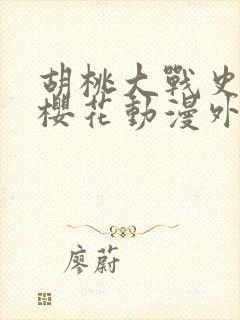 胡桃大戰史
櫻花動漫外
廖蔚